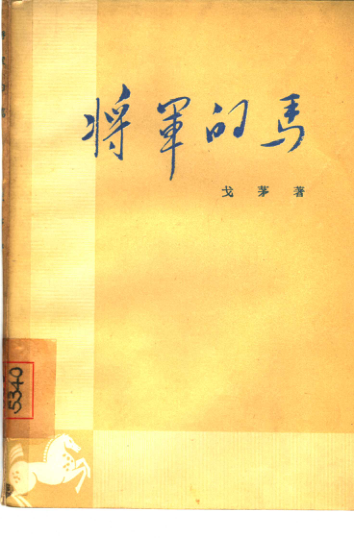 将军的马
戈茅著
5340